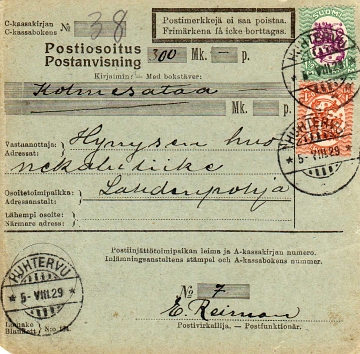 C-kassakirjan
C-kassabokens № 38
Postimerkkejä ei saa poistaa.
Frimärkena få icke borttagas.
SUOMI
Postiosoitus
Postanvisning 300 Mk. — p.
Kirjaimin: — Med bokstäver:
Kolmesataa
Mk. — p.
HUHTERVU
5-VIII.29
Vastaanottaja:
Adressat: Hynysen huo
nekaluliike
HUHTERVU
5-VIII.29
Osoitetoimipaikka:
Adressanstalt: Lahdenpohja
Lähempi osoite:
Närmare adress:
Postiinjättötoimipaikan leima ja A-kassakirjan numero.
Inlämningsanstaltens stämpel och A-kassabokens nummer.
HUHTERVU
5-VIII.29
№ 7
E. Reiman
Postivirkailija. — Postfunktionär.
Lomake
Blankett N:o